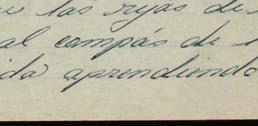 las rejas de
al compás de
ida aprendiendo